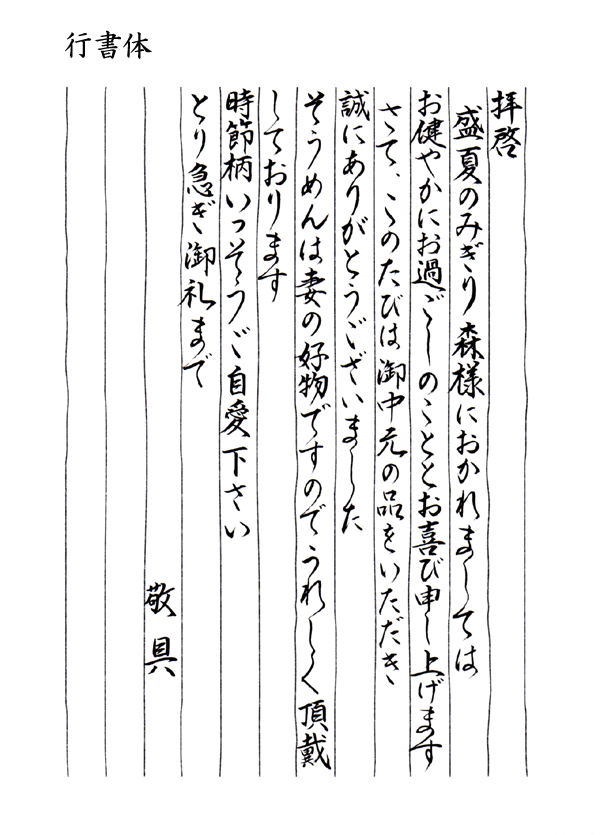 行書体
拝啓
盛夏のみぎり森様におかれましては
お健やかにお過ごしのこととお喜び申し上げます
さて、このたびは御中元の品をいただき
誠にありがとうございました
そうめんは妻の好物ですのでうれしく頂戴
しております
時節柄いっそうご自愛下さい
とり急ぎ御礼まで
敬具